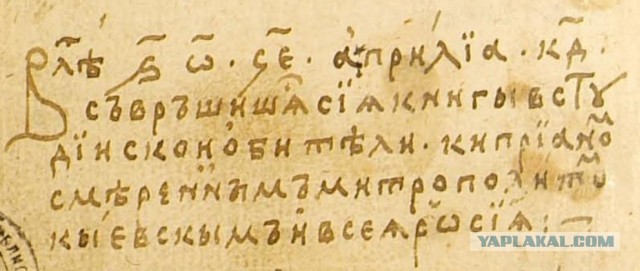 В лⷮѣ ҂ѕ҃ ѡ҃ · ч҃е · априлїа · к҃д ·
съвръшишѧ сїѧ книгы в стꙋ
дїискои обитѣли · кипрїаноⷨ
смѣреннымъ митрополитоⷨ
кыевскымъ и всеѧ рѡсїѧ :—
YAPLAKAL.COM